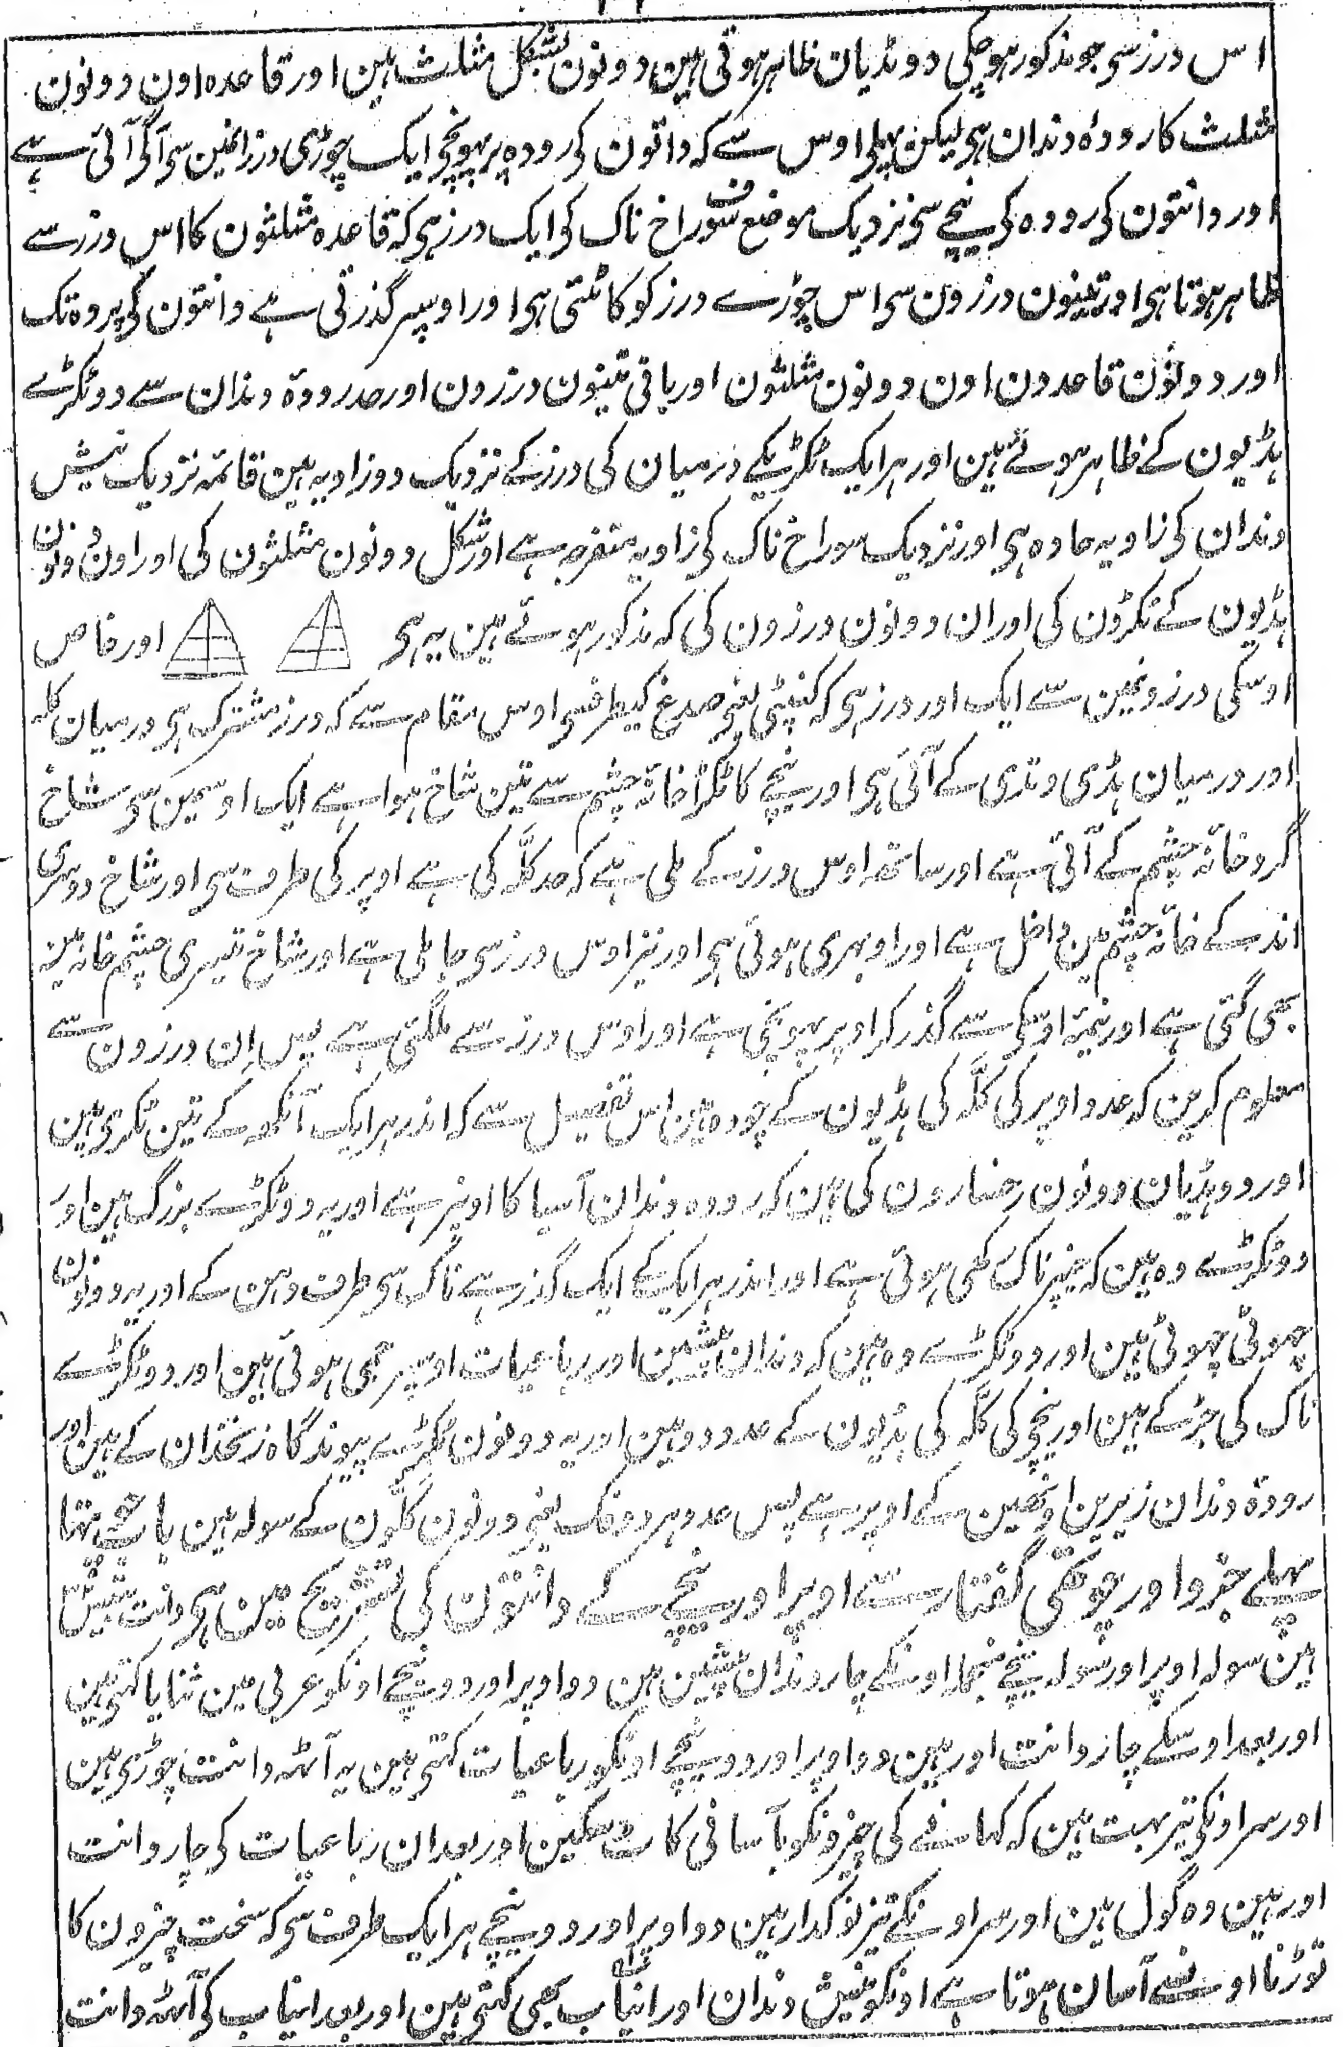 اس درز سی جو مذکور ہوچکی دو ہڈیان ظاہر ہوتی ہین دونون بشکل مثلث ہین اور قاعدہ اون دونون
مثلث کا رودۂ دندان ہی لیکن پہلی اوس سے کہ دانتون کی رودہ پر پہونچی ایک چوڑی درز انمین سی آگی آئی ہے
اور دانتون کی رودہ کی نیچے سی نزدیک موضع سوراخ ناک کی ایک درز ہی کہ قاعدہ مثلثون کا اس درز سے
ظاہر ہوتا ہی اور تینون درزون سی اس چوڑے درز کو کاٹتی ہی اور اوسپر گذرتی ہے دانتون کی رودہ تک
اور دونون قاعدون اون دونون مثلثون اور باقی تینون درزون اور حد رودۂ دندان سے دو ٹکڑے
ہڈیون کے ظاہر ہوئے ہین اور ہر ایک ٹکڑیکے درمیان کی درز کے نزدیک دو زاویہ ہین قائمہ نزدیک نیش
دندان کی زاویہ حادہ ہی اور نزدیک سوراخ ناک کی زاویہ منفرجہ ہے اور شکل دونون مثلثون کی اور اون دونون
ہڈیون کے ٹکڑون کی اور ان دونون درزون کی کہ مذکور ہوئے ہین یہ ہی اور خاص
اوسکی درزونمین سے ایک اور درز ہی کہ کنپٹی یعنی صدغ کیطرفسی اوس مقام سے کہ درز مشترک ہی درمیان کلہ
اور درمیان ہڈی وتدی کے آئی ہی اور نیچے کا ٹکڑا خانۂ چشم سے تین شاخ ہوا ہے ایک اوسمین سی شاخ
گرد خانۂ چشم کے آئی ہے اور ساتھہ اوس درز کے ملی ہے کہ حد کلّہ کی ہے اوپر کی طرف سی اور شاخ دوسری
اندر کے خانۂ چشم مین داخل ہے اور اوبہری ہوئی ہی اور نیز اوس درز سی جا ملی ہے اور شاخ تیسری چشم خانہ مین
بھی گئی ہے اور نیمۂ اوسکی سے گذر کر اوپر پہونچی ہے اور اوس درز سے ملگئی ہے پس اِن درزون سے
معلوم کرین کہ عدد اوپر کی کلّہ کی ہڈیون کے چودہ ہین اس تفصیل سے کہ اندر ہر ایک آنکھہ کے تین ٹکڑی ہین
اور دو ہڈیان دونون رخسارون کی ہین کہ رودہ دندان آسیا کا اوپر ہے اور یہ دو ٹکڑے بزرگ ہین اور
دو ٹکڑے وہ ہین کہ جنپر ناک رکھی ہوئی ہے اور اندر ہر ایک کے ایک گذر ہے ناک سی طرف دہن کے اور یہ دونون
چہوٹی چہوٹی ہین اور دو ٹکڑے وہ ہین کہ دندان پیشین اور رباعیات اوسپر جمی ہوئی ہین اور دو ٹکڑے
ناک کی جڑ کے ہین اور نیچی کی کلّہ کی ہڈیون کے عدد دو ہین اور یہ دونون ٹکڑے پیوندگاہ زنخدان کے ہین اور
رودۂ دندان زیرین اونھین کے اوپر ہے پس عدد ہر دو فک یعنی دونون کلّون کے سولہ ہین باب تہا
پہلے جزو اور چوتھی گفتار سے اوپر اور نیچے کے دانتون کی تشریح مین ہی دانت بتیس
ہین سولہ اوپر اور سولہ نیچے منجملہ اونکے چار دندان پیشین ہین دو اوپر اور دو نیچے اونکو عربی مین ثنایا کہتی ہین
اور بعد اوسکے چار دانت اور ہین دو اوپر اور دو نیچے اونکو رباعیات کہتی ہین یہ آٹہہ دانت چوڑی ہین
اور سر اونکی تیز بہت ہین کہ کہانے کی چیزونکو بآسانی کاٹ سکین اور بعد ان رباعیات کی چار دانت
اور ہین وہ گول ہین اور سر اونکے تیز نوکدار ہین دو اوپر اور دو نیچے ہر ایک طرف سی کہ سخت چیزون کا
توڑنا اونسے آسان ہوتا ہے اونکو نیش دندان اور انیاب بھی کہتی ہین اور بعد انیاب کی آٹہہ دانت